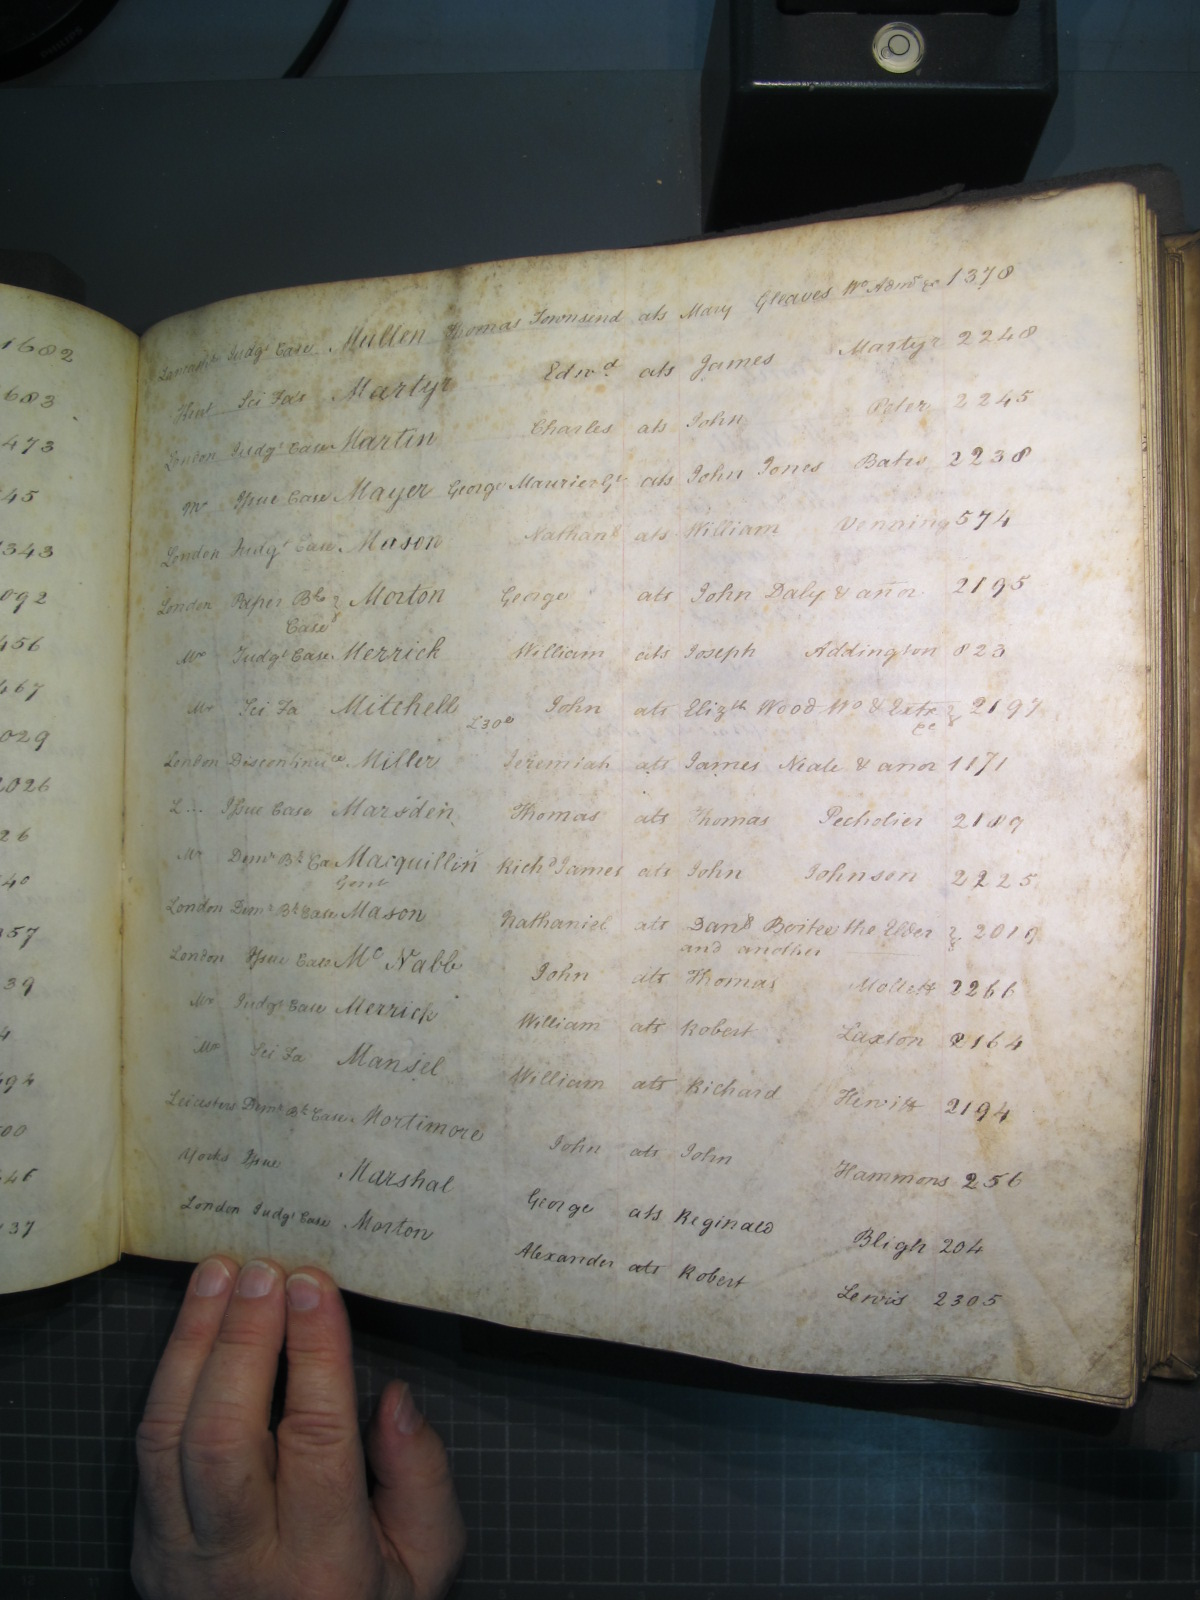 1682
683
473
45
1343
092
456
467
029
2026
26
40
157
39
4
494
00
546
37
Lancasr Judgt Case Mullen Thomas Townsend ats Mary Gleaves Wo Admx &c 1378
Kent Sci Fa's Martyr Edwd ats James Martyr 2248
London Judgt Case Martin Charles ats John Peter 2245
Mx Issue Case Mayer George Maurice Gt ats John Jones Bates 2238
London Judgt Case Mason Nathanl ats William Venning 574
London Paper Bk Case Morton George ats John Daly & anor 2195
Mx Judgt Case Merrick William ats Joseph Addington 823
Mx Sci Fa Mitchell £30 John ats Elizth Wood Wo & Extx &c 2197
London Discontinuce Miller Jeremiah ats James Neale & anor 1171
L... Issue Case Marsden Thomas ats Thomas Pecholier 2189
Mx Demr Bk Ca Macquillin Gent Richd James ats John Johnson 2225
London Demr Bk Case Mason Nathaniel ats Danl Boitee the Elder 2019
and another
London Issue Case Mc Nabb John ats Thomas Mollett 2266
Mx Judgt Case Merrick William ats Robert Laxton 2164
Mx Sci Fa Mansel William ats Richard Hewitt 2194
Leicesters Demr Bk Case Mortimore John ats John Hammons 256
Yorks Issue Marshal George ats Reginald Bligh 204
London Judgt Case Morton Alexander ats Robert Lewis 2305